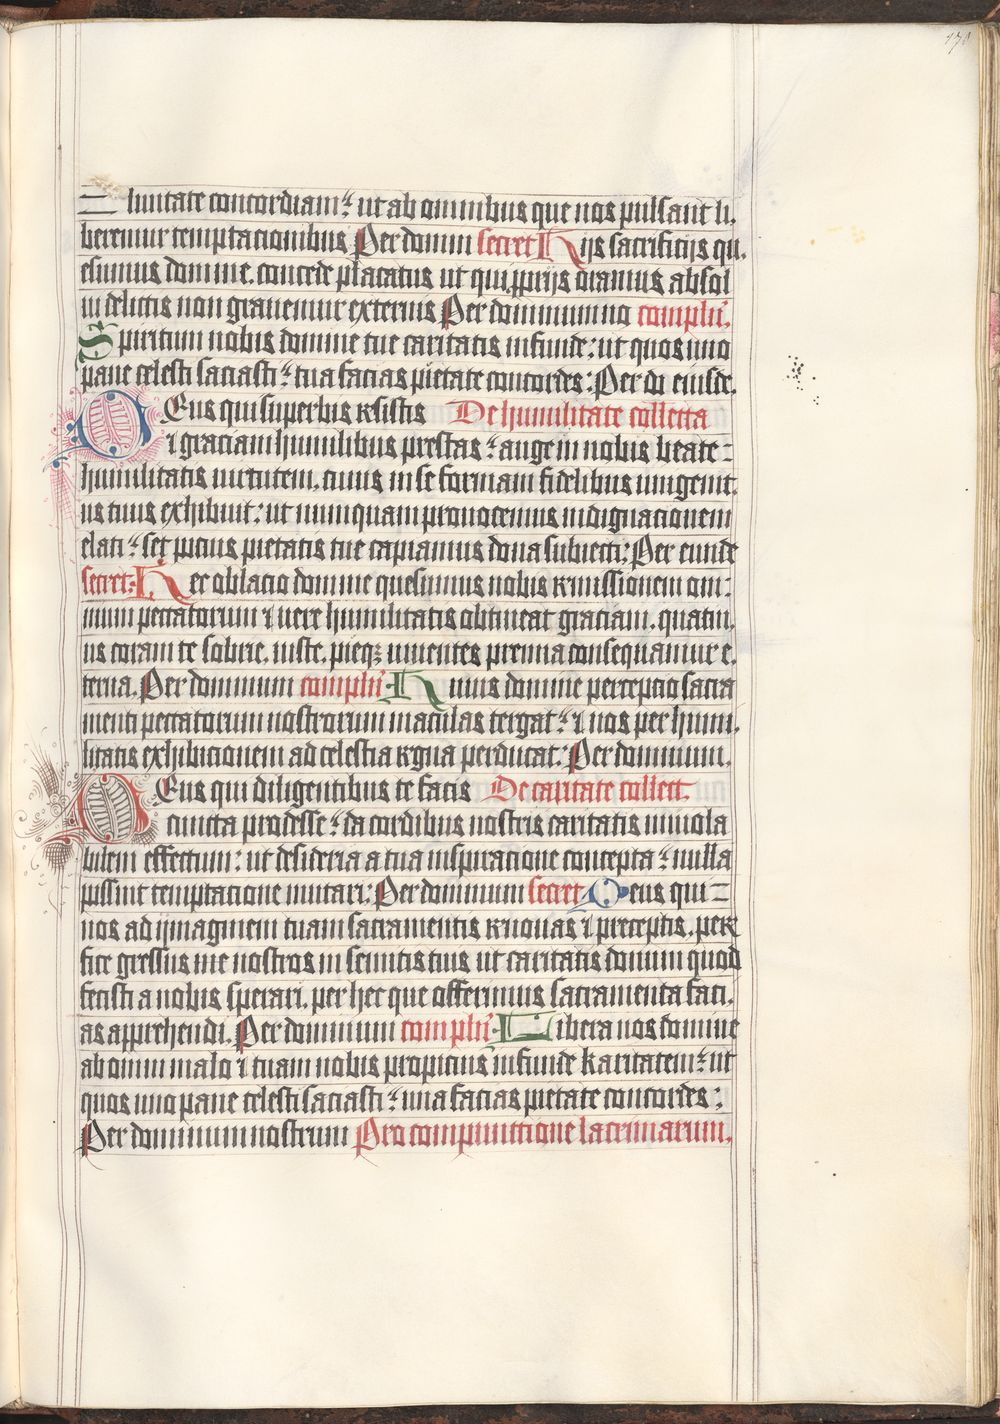 170
luntate concordiam: ut ab omnibus que nos pulsant li,
beremur temptacionibus Per domin secret Hijs sacrificijs qu,
esumus domine, concede placatus ut qui pprijs oramus absol
ui delictis non grauemur externis Per dominum no complu,
Spiritum nobis domine tue caritatis infunde: ut quos uno
pane celesti saciasti: tua facias pietate concordes: Per do eiusde,
DEus qui superbis resistis De humilitate collecta
i graciam humilibus prestas: auge in nobis beate
humilitatis uirtutem, cuius in se formam fidelibus unigenit,
us tuus exhibuit: ut numquam prouocemus indignacionem
elati: set pocius pietatis tue capiamus dona subiecti: Per eunde
secret: Hec oblacio domine quesumus nobis remissionem om:
nium peccatorum et uere humilitatis obtineat graciam, quatin,
us coram te sobrie, iuste, pieqz uiuentes premia consequamur e,
terna. Per dominum complu Huius domine perceptio sacra
menti peccatorum nostrorum maculas tergat: et nos per humi,
litatis exhibicionem ad celestia regna perducat: Per dominum,
DEus qui diligentibus te facis De caritate collect
cuncta prodesse: da cordibus nostris caritatis inuiola
bilem effectum: ut desideria a tua inspiracione concepta: nulla
possint temptacione mutari: Per dominum secret Deus qui
nos ad ijmaginem tuam sacramentis renouas et preceptis, perf
fice gressus me nostros in semitis tuis ut caritatis donum quod
fecisti a nobis sperari, per hec que offerimus sacramenta faci,
as apprehendi, Per dominum complu Libera nos domine
ab omni malo et tuam nobis propicius infunde karitatem: ut
quos uno pane celesti saciasti: una facias pietate concordes:
Per dominum nostrum Pro compunctione lacrimarum,